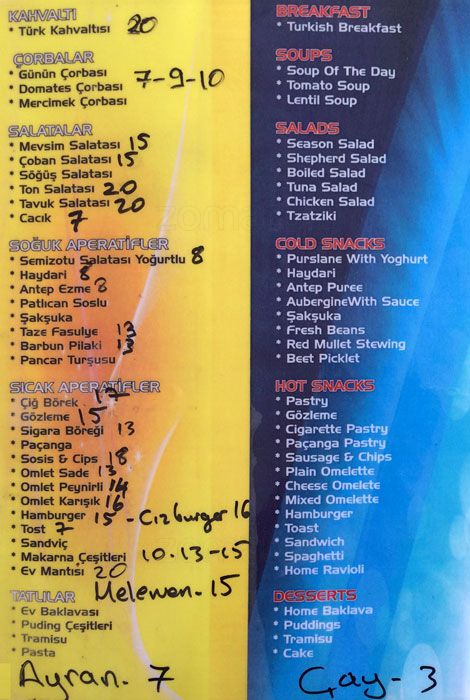 KAHVALTI
* Türk Kahvaltısı 20
ÇORBALAR
* Günün Çorbası
* Domates Çorbası 7-9-10
* Mercimek Çorbası
SALATALAR
* Mevsim Salatası 15
* Çoban Salatası 15
* Söğüş Salatası
* Ton Salatası 20
* Tavuk Salatası 20
* Cacık 7
SOĞUK APERATİFLER
* Semizotu Salatası Yoğurtlu 8
* Haydari 8
* Antep Ezme 8
* Patlıcan Soslu
* Şakşuka
* Taze Fasulye 13
* Barbun Pilaki 13
* Pancar Turşusu
SICAK APERATİFLER
* Çiğ Börek 17
* Gözleme 15
* Sigara Böreği 13
* Paçanga
* Sosis & Cips 18
* Omlet Sade 13
* Omlet Peynirli 14
* Omlet Karışık 16
* Hamburger 15 - Cizburger 16
* Tost 7
* Sandviç
* Makarna Çeşitleri 10-13-15
* Ev Mantısı 20
Melemen-15
TATLILAR
* Ev Baklavası
* Puding Çeşitleri
* Tramisu
* Pasta
Ayran- 7
BREAKFAST
* Turkish Breakfast
SOUPS
* Soup Of The Day
* Tomato Soup
* Lentil Soup
SALADS
* Season Salad
* Shepherd Salad
* Boiled Salad
* Tuna Salad
* Chicken Salad
* Tzatziki
COLD SNACKS
* Purslane With Yoghurt
* Haydari
* Antep Puree
* AubergineWith Sauce
* Şakşuka
* Fresh Beans
* Red Mullet Stewing
* Beet Picklet
HOT SNACKS
* Pastry
* Gözleme
* Cigarette Pastry
* Paçanga Pastry
* Sausage & Chips
* Plain Omelette
* Cheese Omelete
* Mixed Omelette
* Hamburger
* Toast
* Sandwich
* Spaghetti
* Home Ravioli
DESSERTS
* Home Baklava
* Puddings
* Tramisu
* Cake
Çay- 3